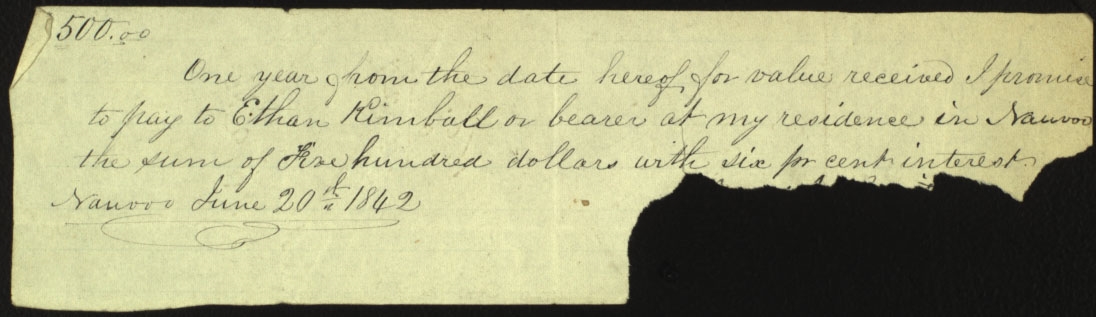 500.00
One year from the date hereof for value received I promise
to pay to Ethan Kimball or bearer at my residence in Nauvoo
the sum of Five hundred dollars with six pr cent interest
Nauvoo June 20th 1842